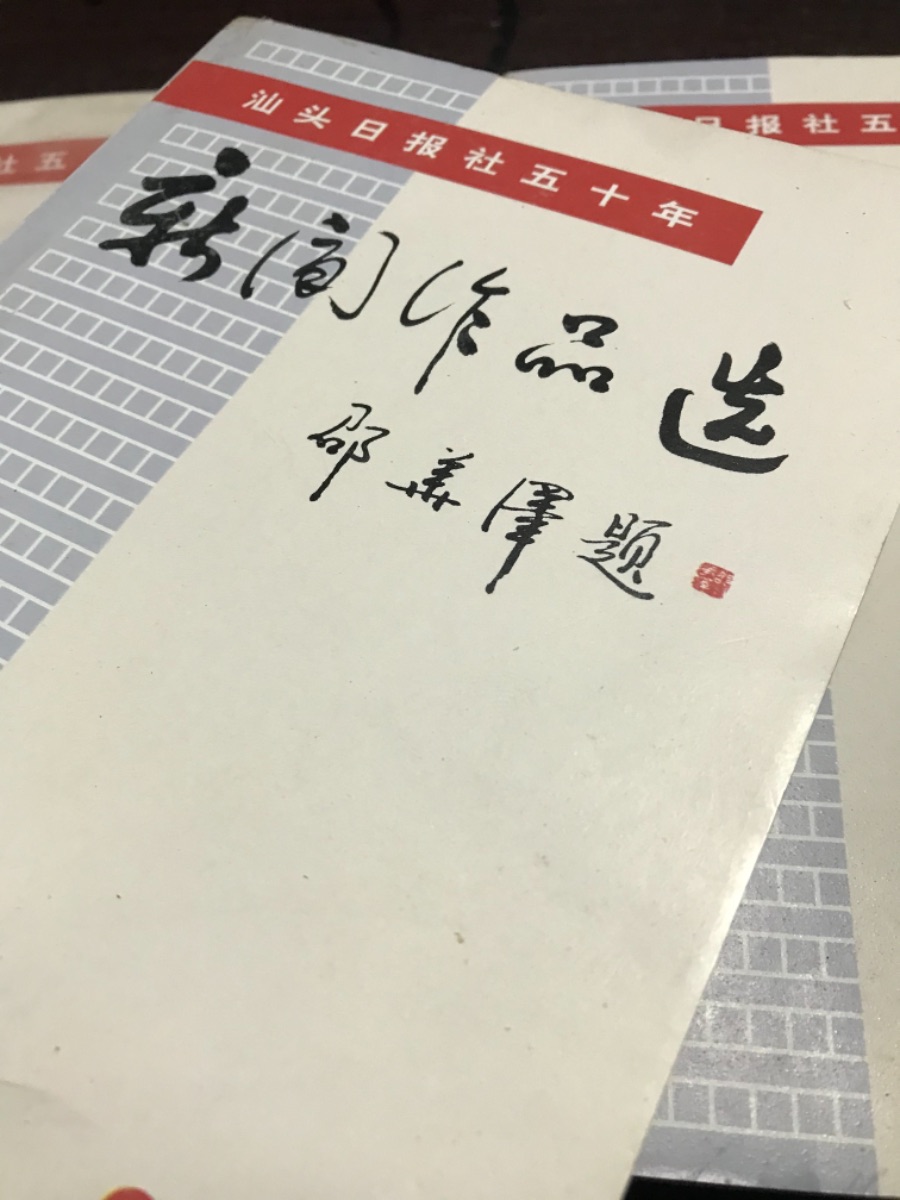 汕头日报社五十年
新闻作品选
邵華澤题
社五
日报社五